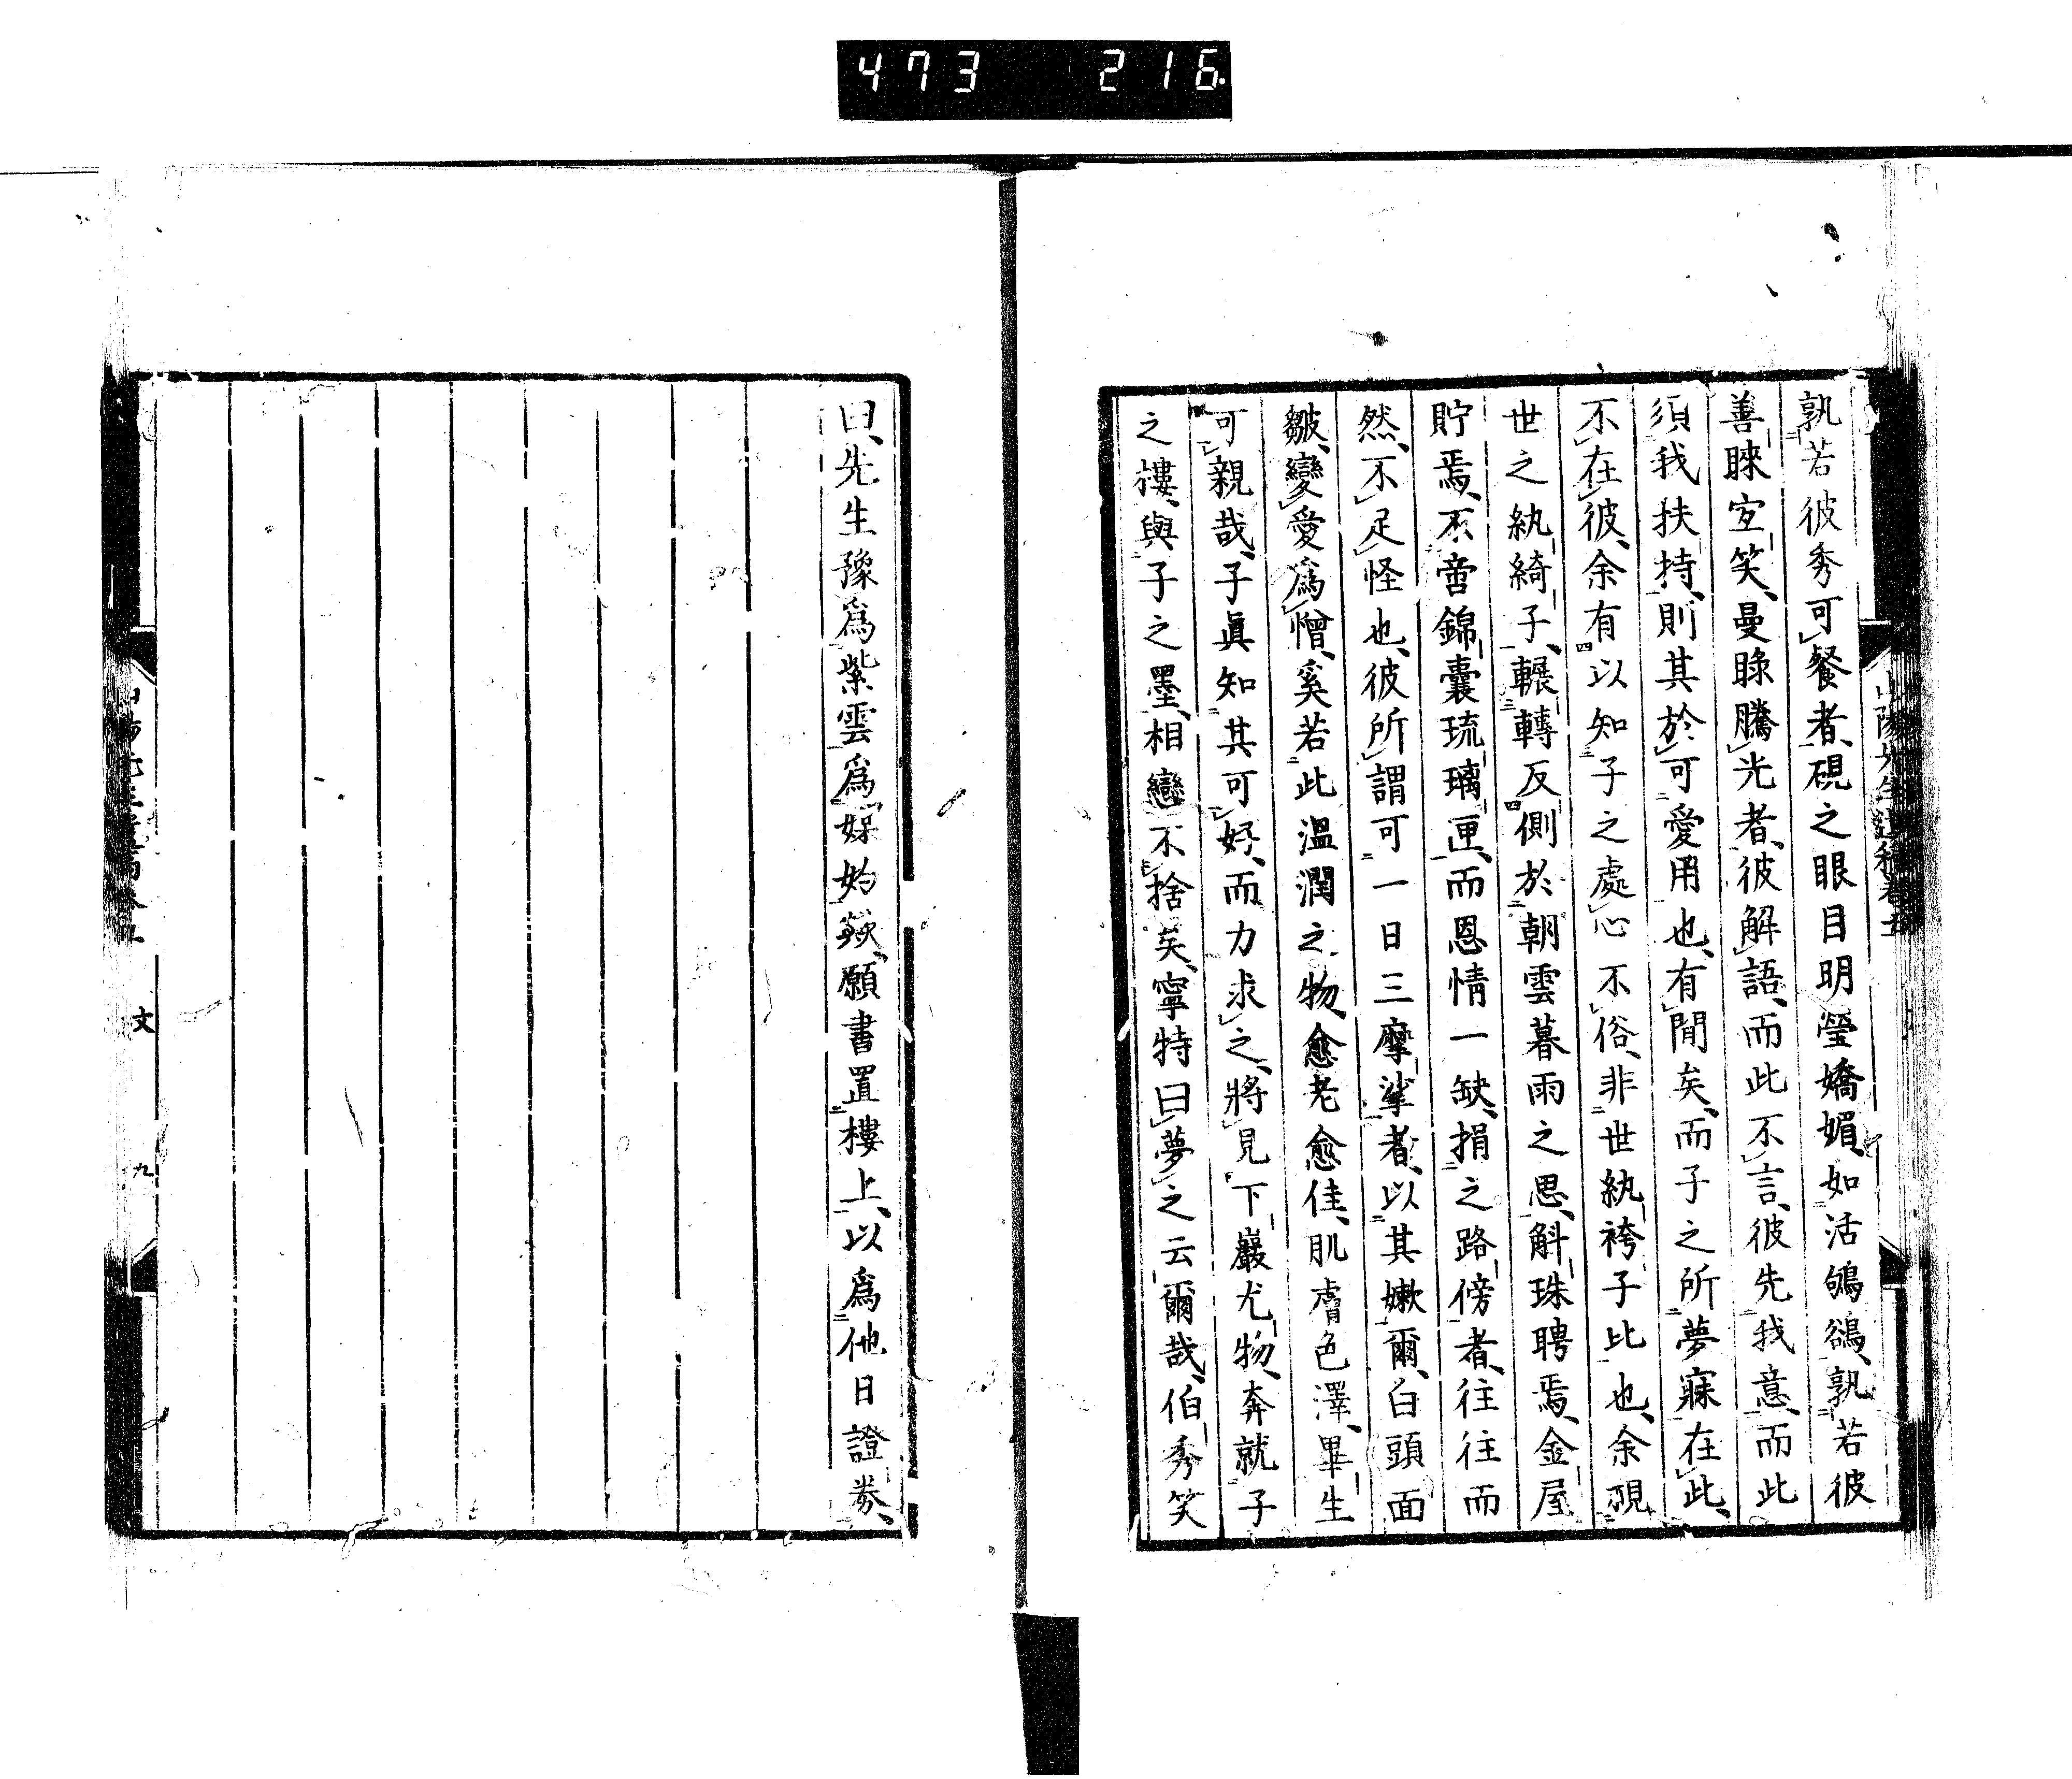 473 216
山陽先生遺稿卷五
孰若彼秀可餐者、硯之眼目明瑩嬌媚、如活鴝鵒、孰若彼
善睞宜笑、曼睩騰光者、彼解語、而此不言、彼先我意、而此
須我扶持、則其於可愛用也、有間矣、而子之所夢寐在此、
不在彼、余有以知子之處心不俗、非世紈袴子比也、余覩
世之紈綺子、輾轉反側於朝雲暮雨之思、斛珠聘焉、金屋
貯焉、不啻錦囊琉璃匣、而恩情一缺、捐之路傍者、往往而
然、不足怪也、彼所謂可一日三摩挲者、以其嫩爾、白頭面
皺、變愛爲憎、奚若此溫潤之物、愈老愈佳、肌膚色澤、畢生
可親哉、子眞知其可好、而力求之、將見下巖尤物、奔就子
之樓、與子之墨、相戀不捨矣、寧特曰夢之云爾哉、伯秀笑
曰、先生豫爲紫雲爲媒妁歟、願書置樓上、以爲他日證券、
文
九